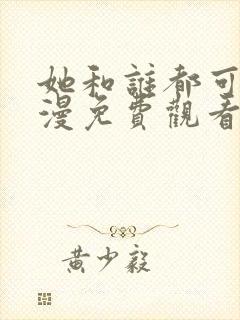 她和誰都可
漫免費觀看
黃少毅